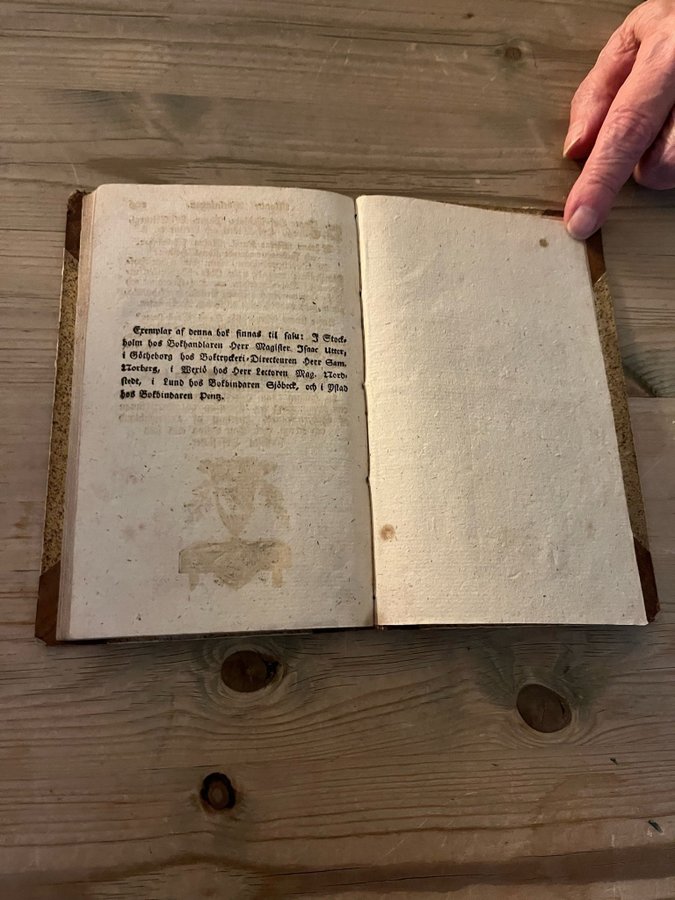 Exemplar af denna bok finnas til salu: I Stock-
holm hos Bokhandlaren Herr Magister Isaac Utter,
i Götheborg hos Boktryckeri-Directeuren Herr Sam.
Norberg, i Wexiö hos Herr Lectoren Mag. Nord-
stedt, i Lund hos Bokbindaren Sjöbeck, och i Ystad
hos Bokbindaren Pentz.